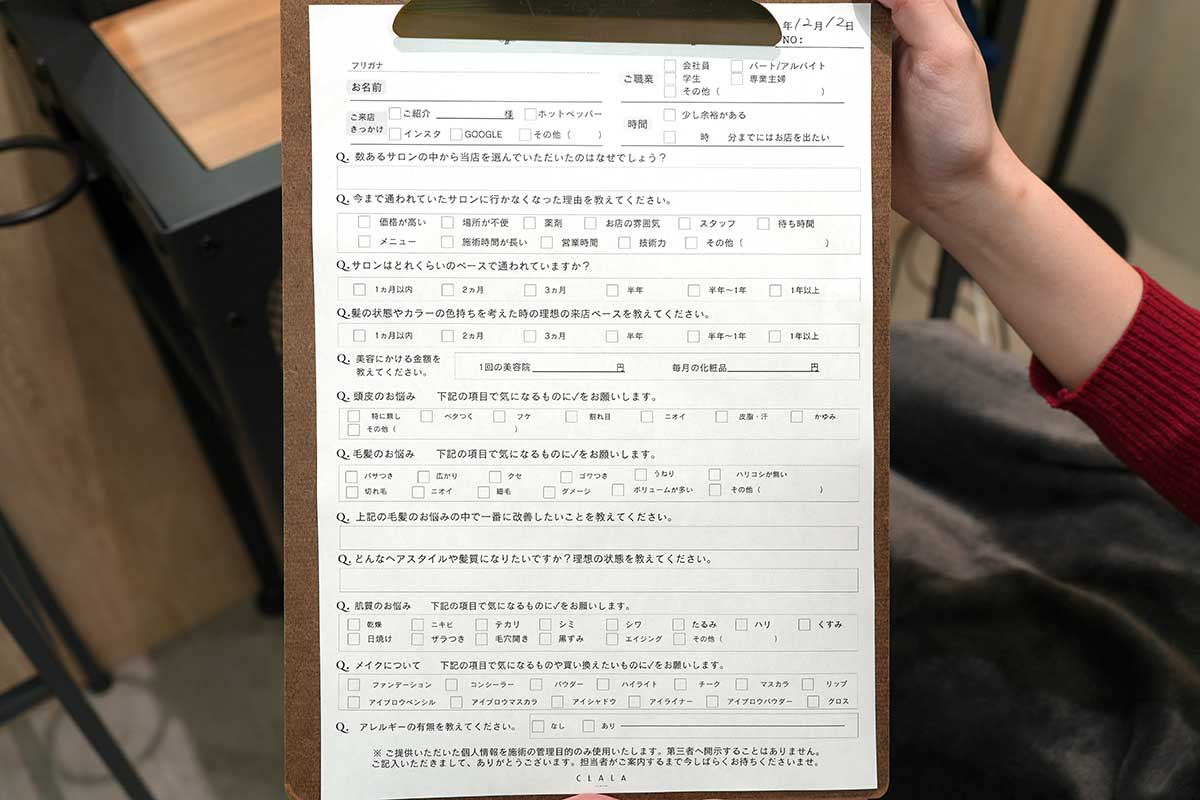 年12月12日
NO:
フリガナ
お名前
ご職業 会社員 パート/アルバイト
学生 専業主婦
その他（ ）
ご来店きっかけ ご紹介 様 ホットペッパー
インスタ GOOGLE その他（ ）
時間 少し余裕がある
時 分までにはお店を出たい
Q. 数あるサロンの中から当店を選んでいただいたのはなぜでしょう？
Q. 今まで通われていたサロンに行かなくなった理由を教えてください。
価格が高い 場所が不便 薬剤 お店の雰囲気 スタッフ 待ち時間
メニュー 施術時間が長い 営業時間 技術力 その他（ ）
Q. サロンはどれくらいのペースで通われていますか？
1ヵ月以内 2ヵ月 3ヵ月 半年 半年〜1年 1年以上
Q. 髪の状態やカラーの色持ちを考えた時の理想の来店ペースを教えてください。
1ヵ月以内 2ヵ月 3ヵ月 半年 半年〜1年 1年以上
Q. 美容にかける金額を
教えてください。
1回の美容院 円 毎月の化粧品 円
Q. 頭皮のお悩み 下記の項目で気になるものに✓をお願いします。
特に無し ベタつく フケ 割れ目 ニオイ 皮脂・汗 かゆみ
その他（ ）
Q. 毛髪のお悩み 下記の項目で気になるものに✓をお願いします。
パサつき 広がり クセ ゴワつき うねり ハリコシが無い
切れ毛 ニオイ 細毛 ダメージ ボリュームが多い その他（ ）
Q. 上記の毛髪のお悩みの中で一番に改善したいことを教えてください。
Q. どんなヘアスタイルや髪質になりたいですか？理想の状態を教えてください。
Q. 肌質のお悩み 下記の項目で気になるものに✓をお願いします。
乾燥 ニキビ テカリ シミ シワ たるみ ハリ くすみ
日焼け ザラつき 毛穴開き 黒ずみ エイジング その他（ ）
Q. メイクについて 下記の項目で気になるものや買い換えたいものに✓をお願いします。
ファンデーション コンシーラー パウダー ハイライト チーク マスカラ リップ
アイブロウペンシル アイブロウマスカラ アイシャドウ アイライナー アイブロウパウダー グロス
Q. アレルギーの有無を教えてください。 なし あり
※ ご提供いただいた個人情報を施術の管理目的のみ使用いたします。第三者へ開示することはありません。
ご記入いただきまして、ありがとうございます。担当者がご案内するまで今しばらくお待ちくださいませ。
CLALA